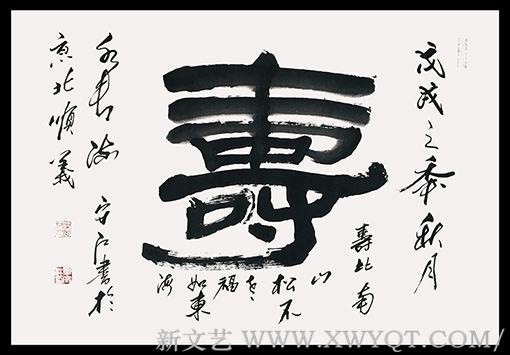 戊戌之季秋月
壽
壽比南
山
松不
老
福
如東
海
水長流 守江書於
京北順義
新文艺 WWW.XWYQT.COM/